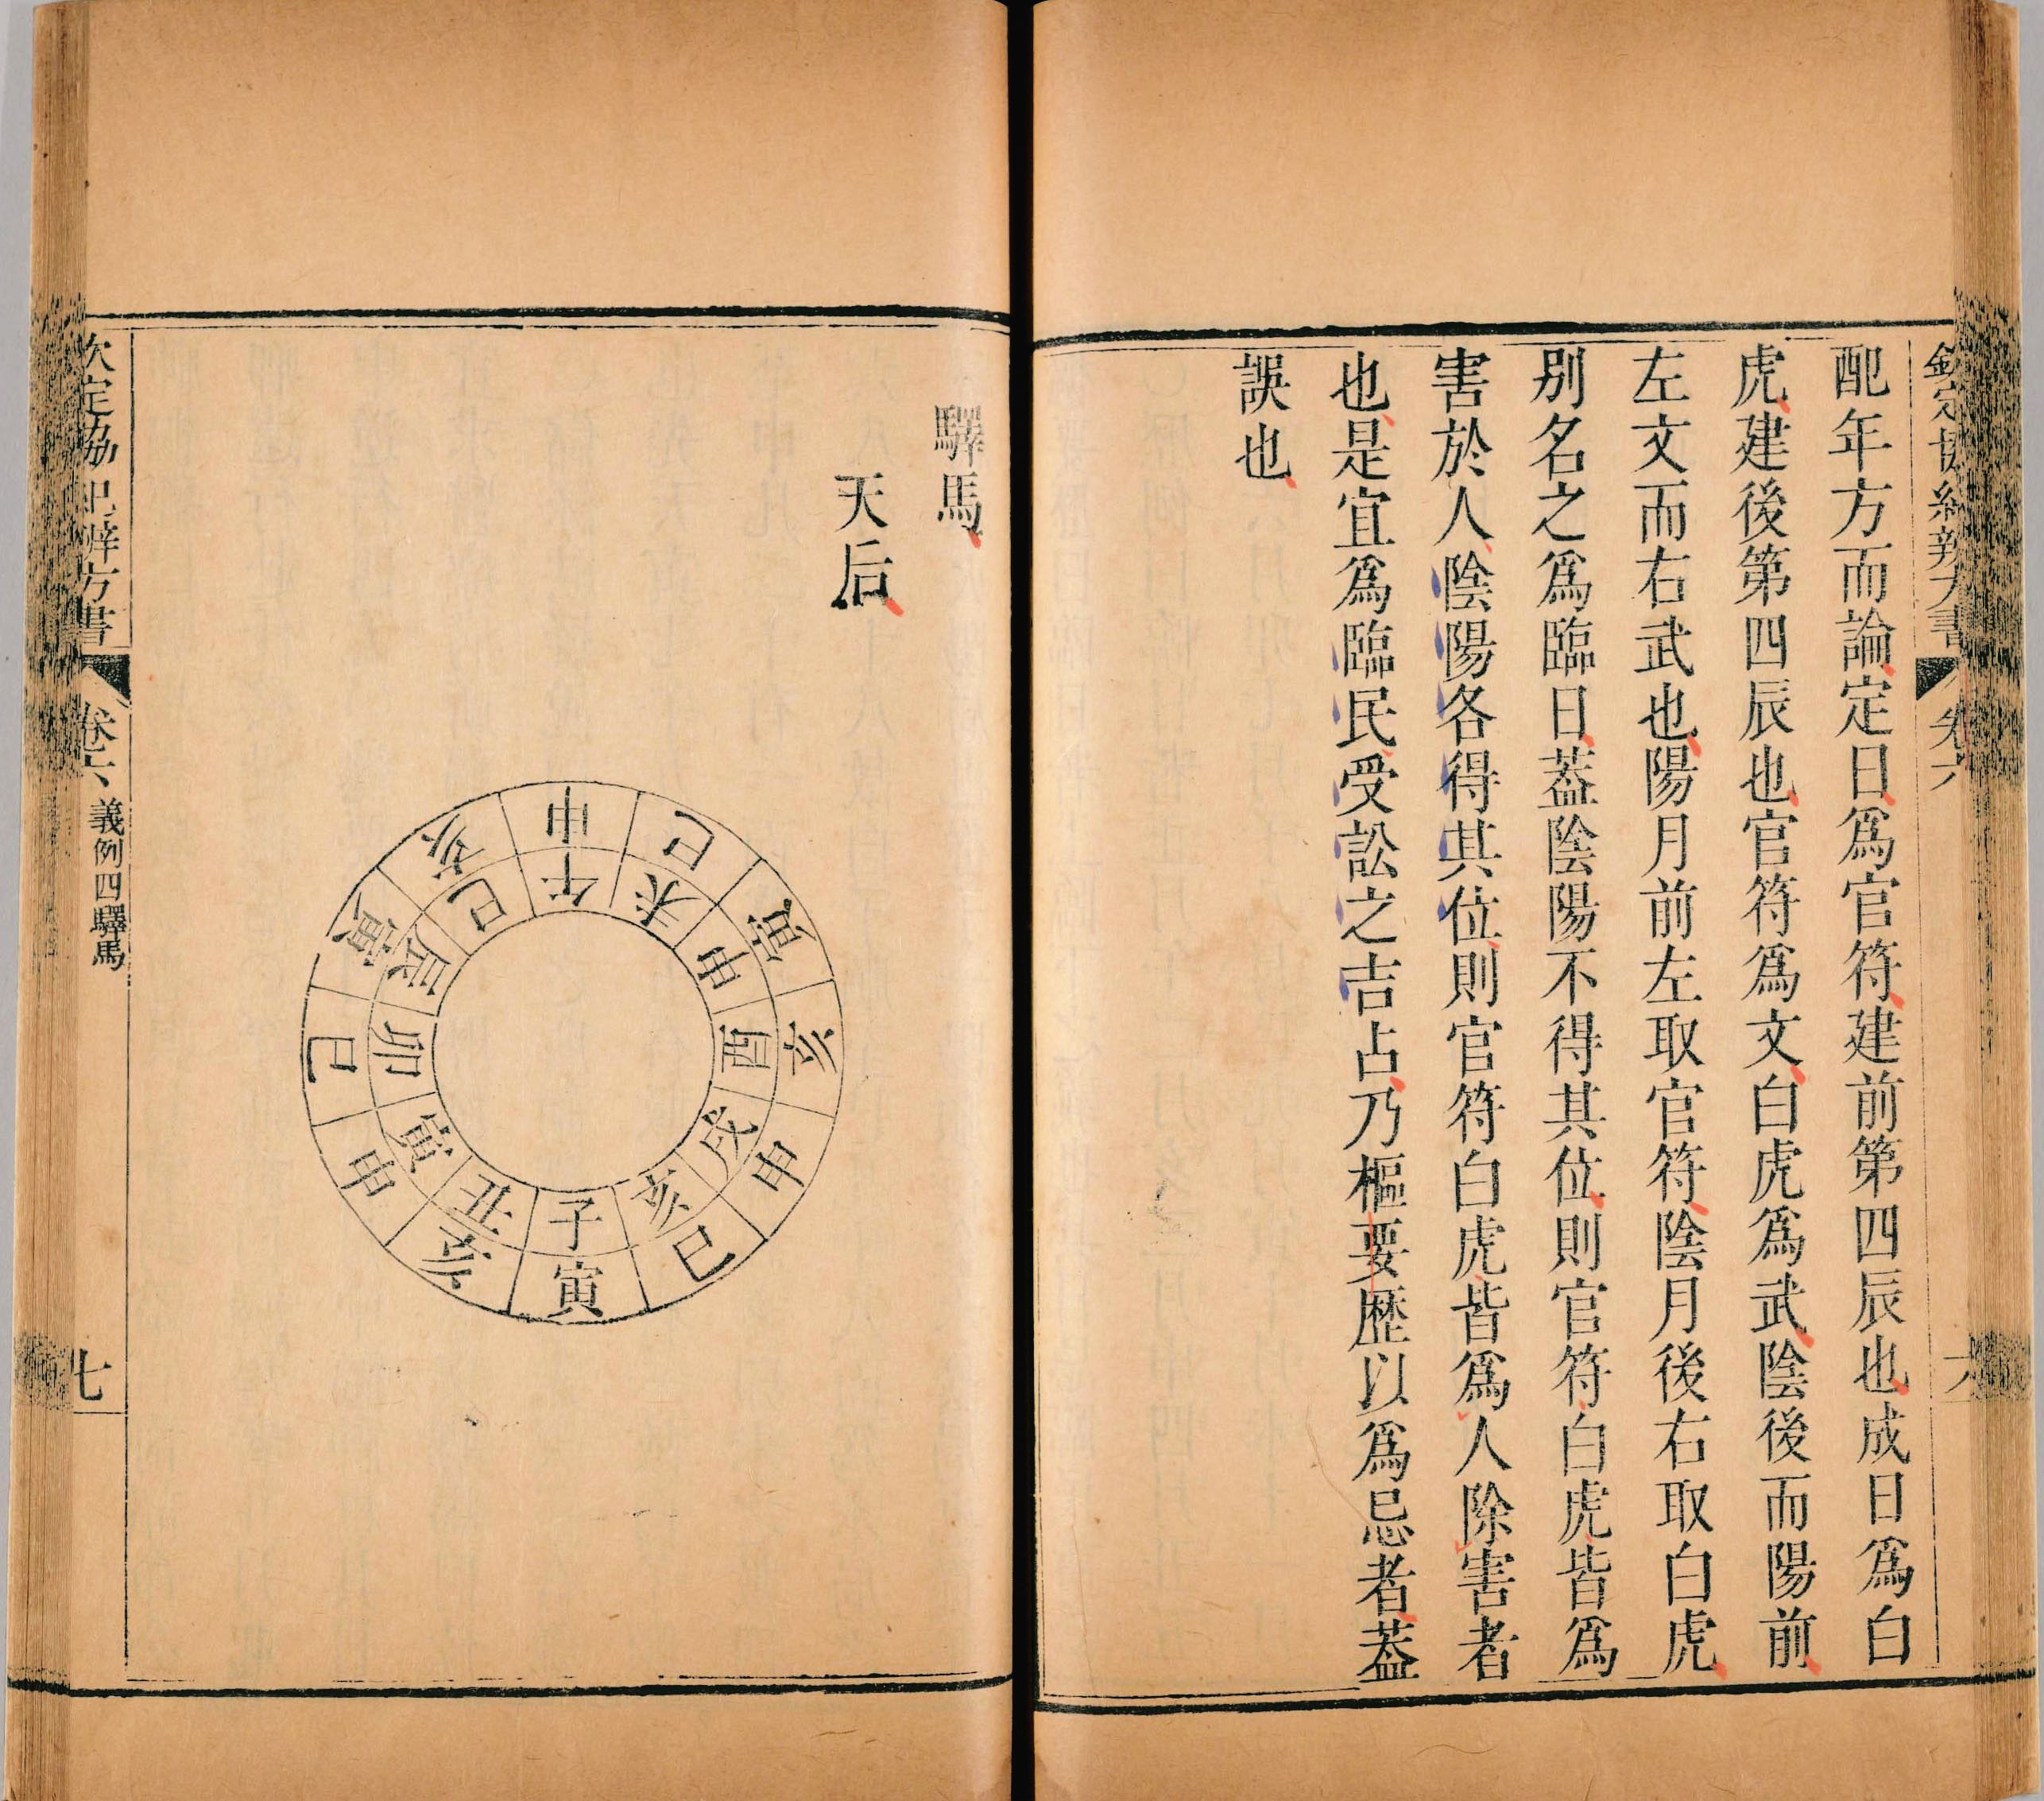 欽定協紀辨方書
卷六
六
配年方而論定日爲官符建前第四辰也成日爲白
虎建後第四辰也官符爲文白虎爲武陰後而陽前
左文而右武也陽月前左取官符陰月後右取白虎
别名之爲臨日葢陰陽不得其位則官符白虎皆爲
害於人陰陽各得其位則官符白虎皆爲人除害者
也是宜爲臨民受訟之吉占乃樞要歷以爲忌者葢
誤也
驛馬
天后
申
巳
寅
亥
申
巳
寅
亥
申
巳
寅
亥
午
未
申
酉
戌
亥
子
丑
寅
卯
辰
巳
欽定協紀辨方書
卷六
義例四驛馬
七